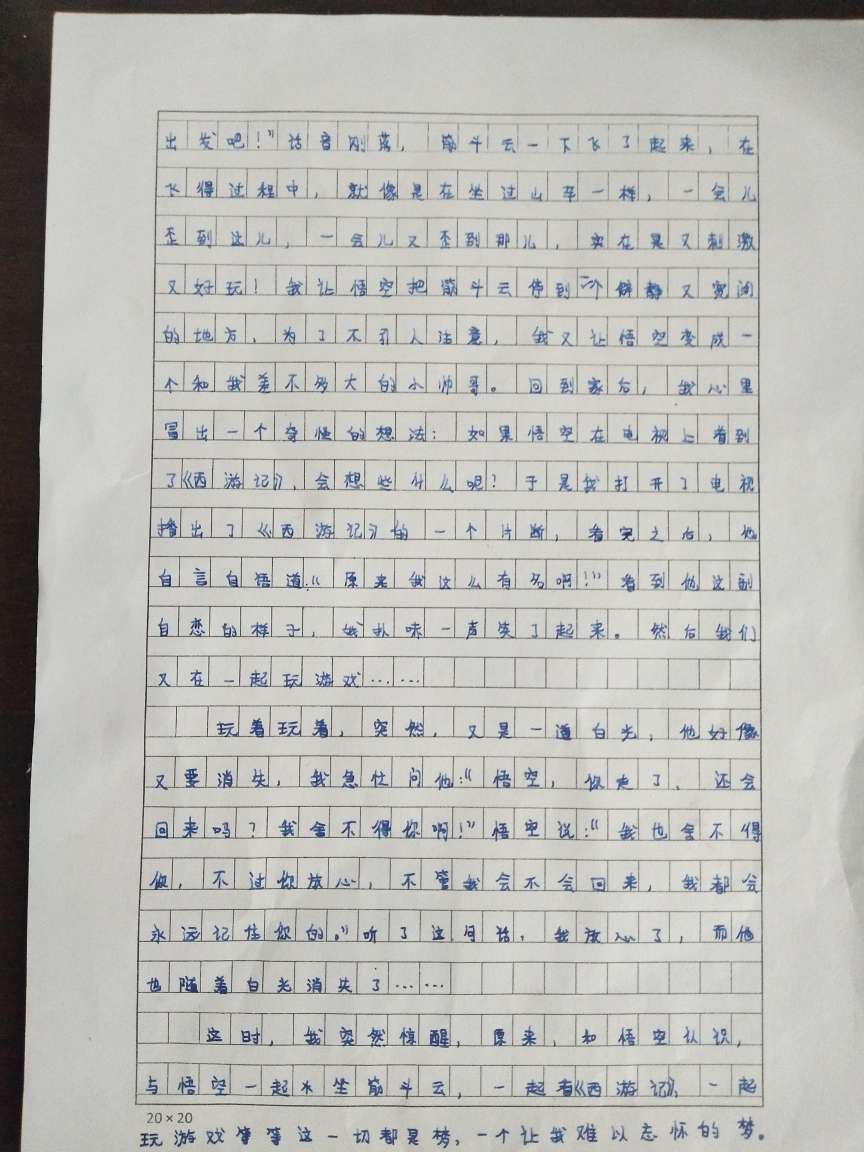 出发吧！”话音刚落，筋斗云一下飞了起来，在
飞得过程中，就像是在坐过山车一样，一会儿
歪到这儿，一会儿又歪到那儿，实在是又刺激
又好玩！我让悟空把筋斗云停到一个僻静又宽阔
的地方，为了不引人注意，我又让悟空变成一
个和我差不多大的小帅哥。回到家后，我心里
冒出一个奇怪的想法：如果悟空在电视上看到
了《西游记》，会想些什么呢？于是我打开了电视
播出了《西游记》的一个片断，看完之后，他
自言自语道：“原来我这么有名啊！”看到他这副
自恋的样子，我扑哧一声笑了起来。然后我们
又在一起玩游戏……
玩着玩着，突然，又是一道白光，他好像
又要消失，我急忙问他：“悟空，你走了，还会
回来吗？我舍不得你啊！”悟空说：“我也舍不得
你，不过你放心，不管我会不会回来，我都会
永远记住你的。”听了这句话，我放心了，而他
也随着白光消失了……
这时，我突然惊醒，原来，和悟空认识，
与悟空一起坐筋斗云，一起看《西游记》，一起
20×20
玩游戏等等这一切都是梦，一个让我难以忘怀的梦。